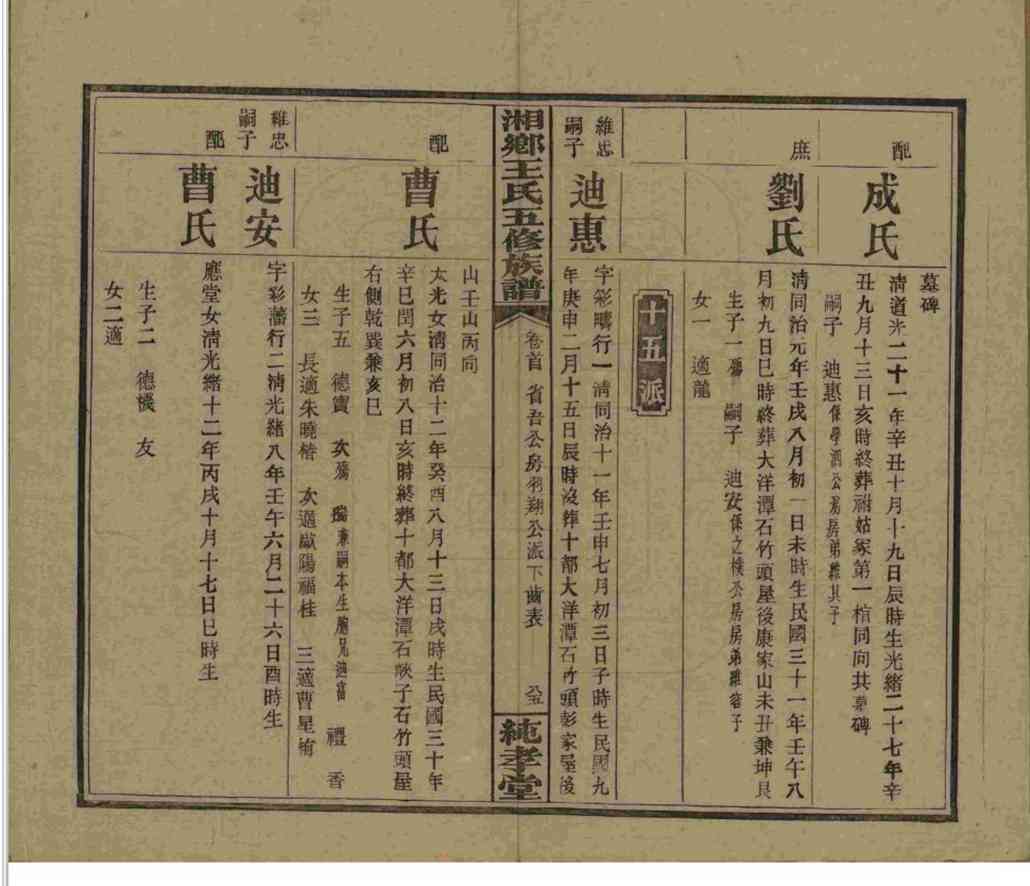 墓碑
配
成氏
清道光二十一年辛丑十月十九日辰時生光緒二十七年辛
丑九月十三日亥時終葬祔姑冢第一棺同向共墓碑
嗣子 迪惠係學泗公房弟維其子
庶
劉氏
清同治元年壬戌八月初一日未時生民國三十一年壬午八
月初九日巳時終葬大洋潭石竹頭屋後康家山未丑兼坤艮
生子一殤 嗣子 迪安係之樸公房房弟維容子
女一 適龍
十五派
維忠
嗣子
迪惠
字彩疇行一清同治十一年壬申七月初三日子時生民國九
年庚申二月十五日辰時沒葬十都大洋潭石竹頭彭家屋後
湘鄉王氏五修族譜
卷首 省吾公房羽翔公派下齒表
純孝堂
山壬山丙向
配
曹氏
太光女清同治十二年癸酉八月十三日戌時生民國三十年
辛巳閏六月初八日亥時終葬十都大洋潭石峽子石竹頭屋
右側乾巽兼亥巳
生子五 德寶 次殤 兼嗣本生胞兄迪富 禮 香
女三 長適朱曉楷 次適歐陽福桂 三適曹星
維忠
嗣子
迪安
字彩藩行二清光緒八年壬午六月二十六日酉時生
配
曹氏
應堂女清光緒十二年丙戌十月十七日巳時生
生子二 德機 友
女二適